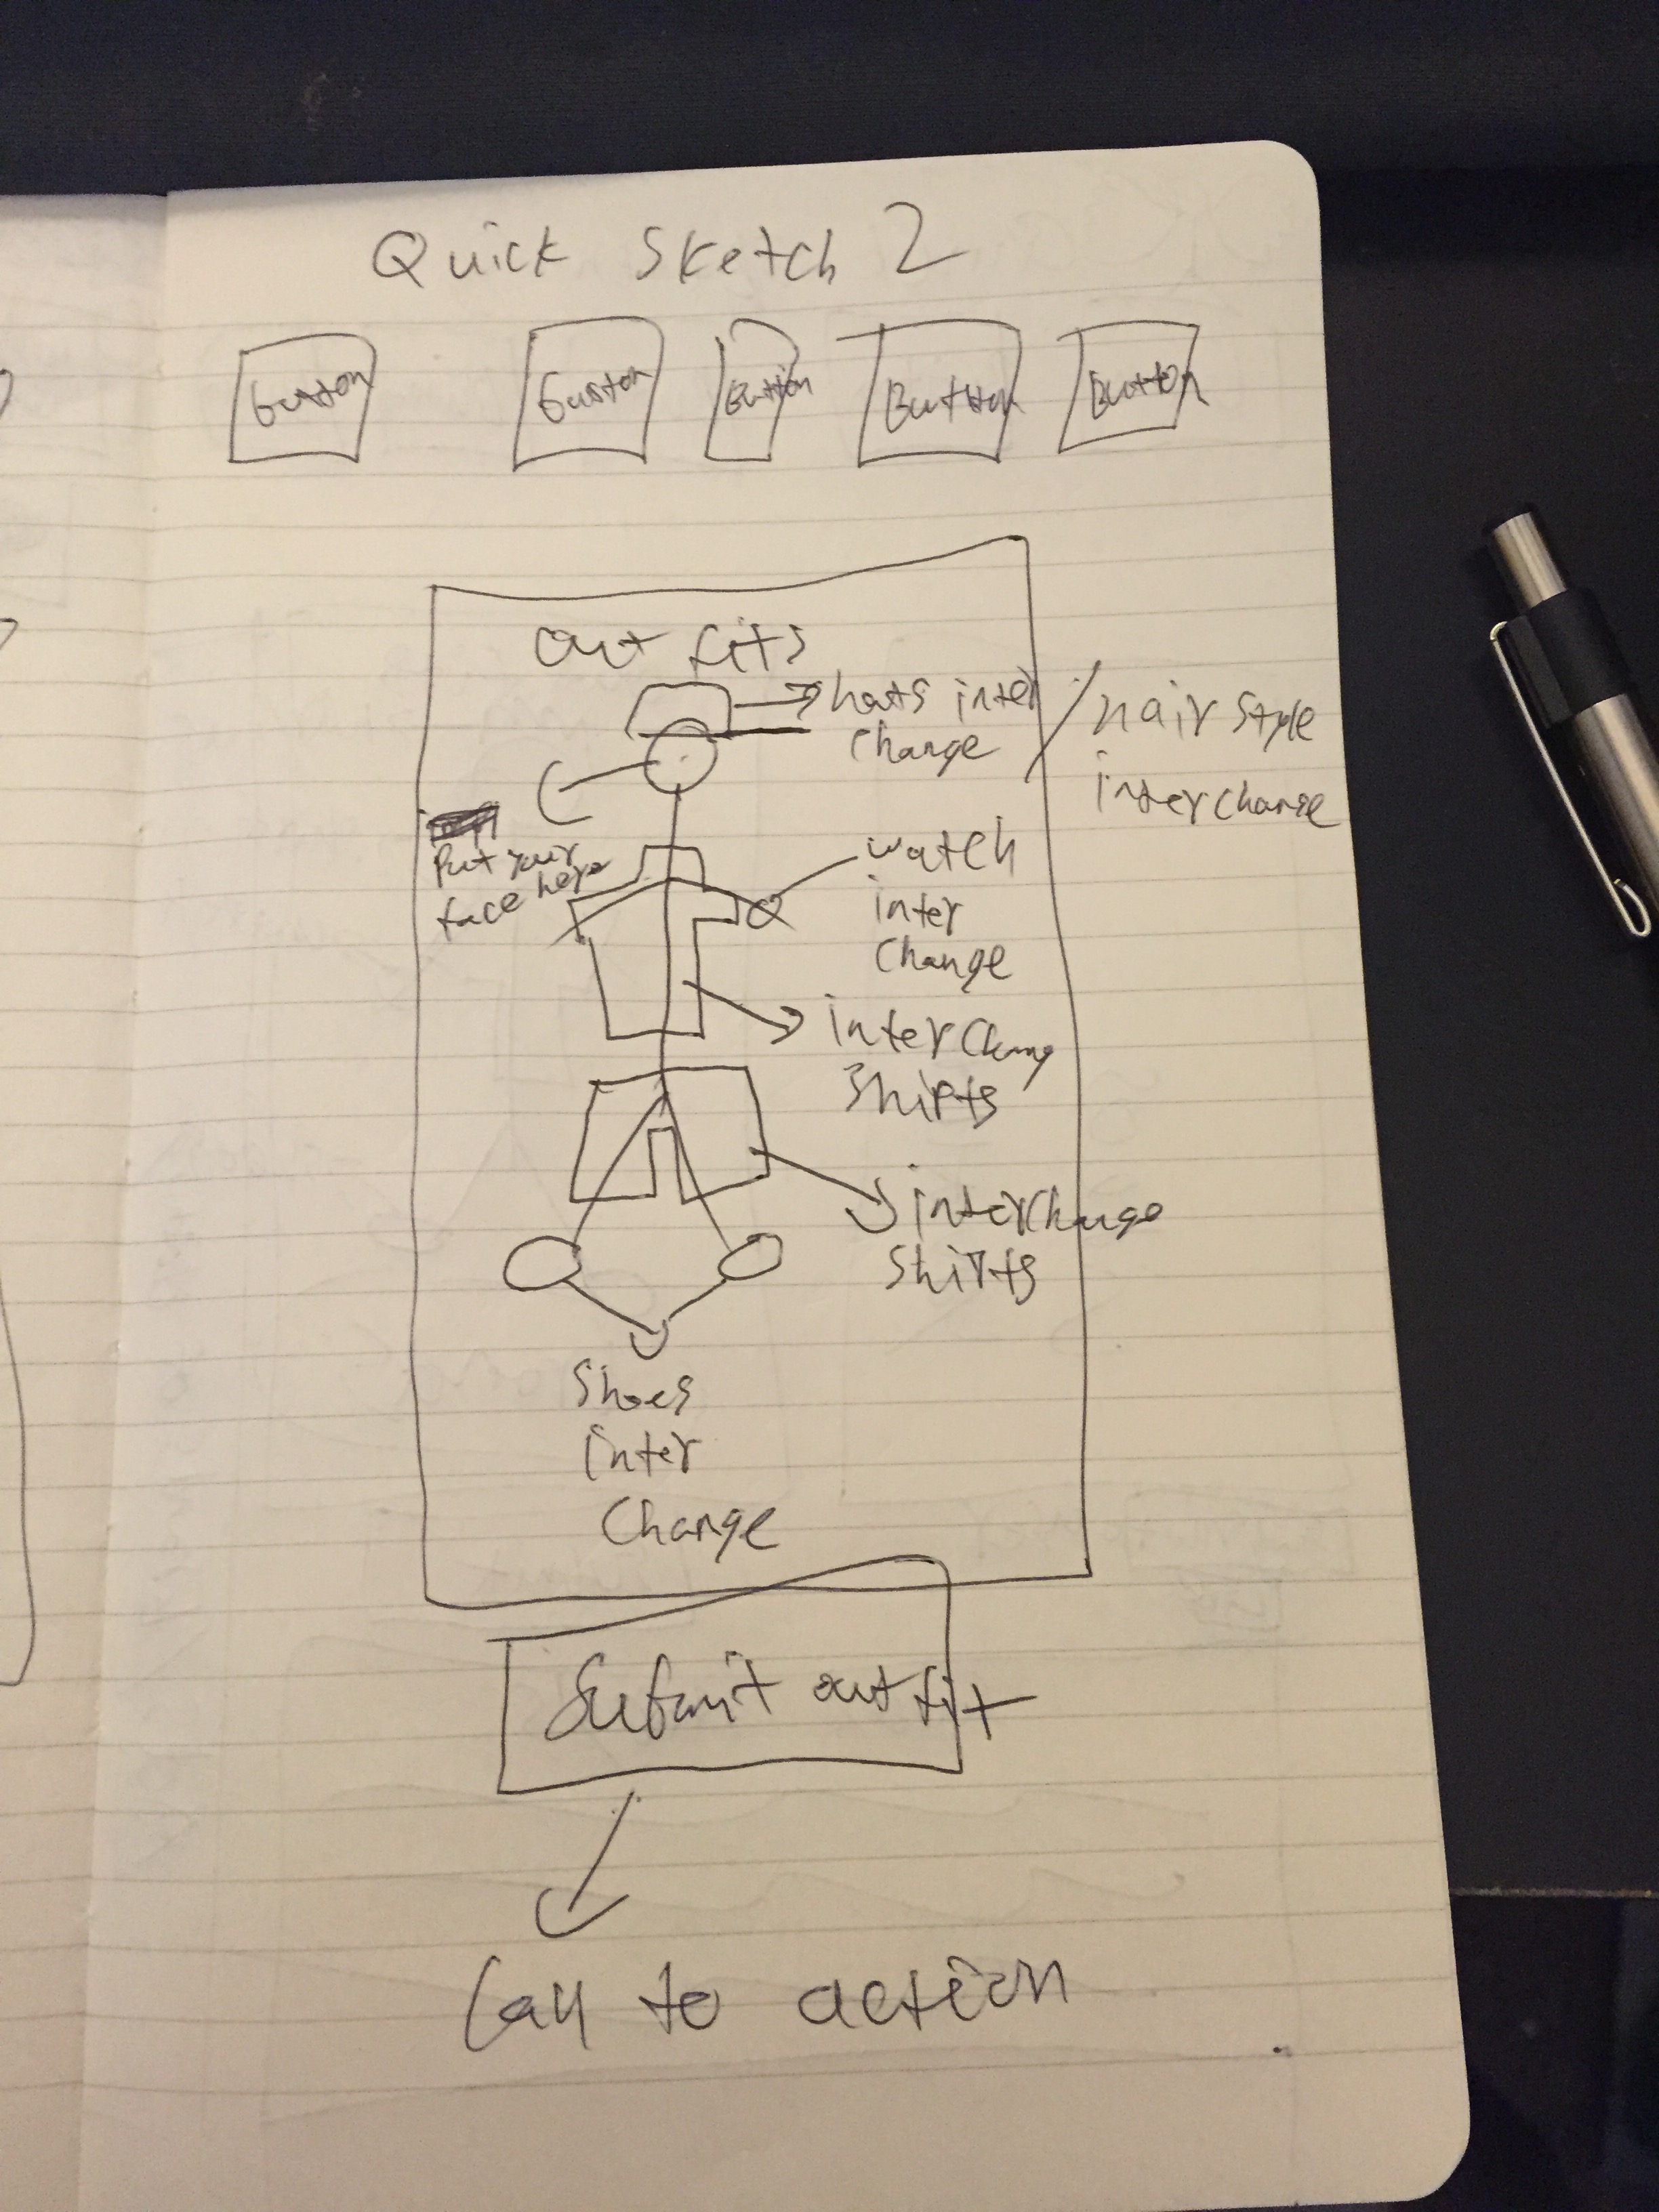 Quick Sketch 2
button button Button Button Button
out fits
hats inter
change
/ hair style
interchange
Put your
face here
watch
inter
change
interchang
shirts
interchange
shirts
Shoes
inter
change
Submit outfit
Call to action